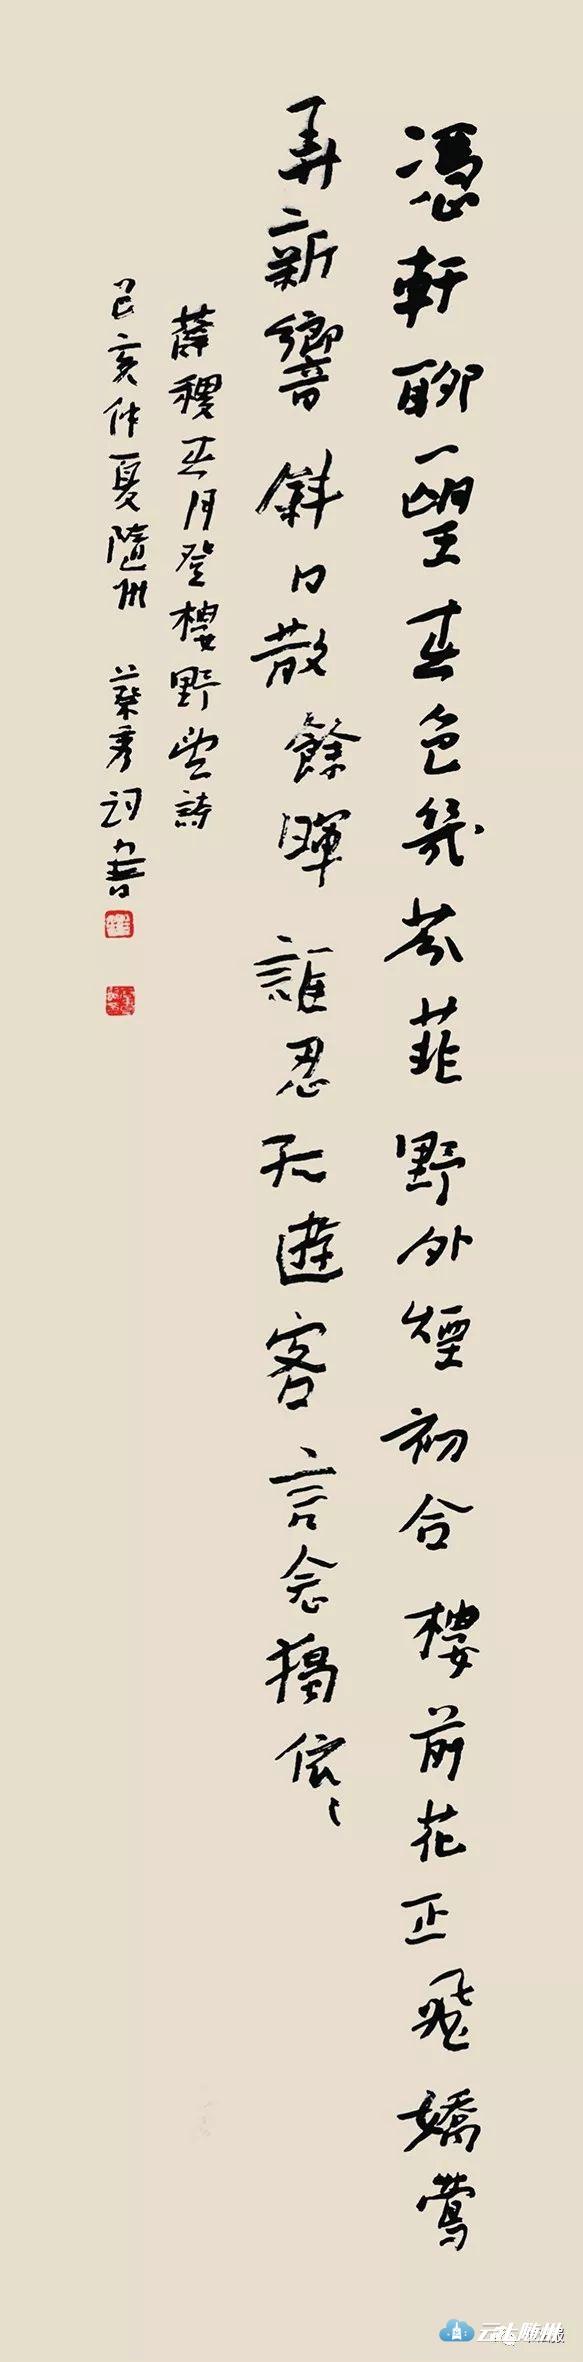 憑軒聊一望春色幾芬菲野外煙初合樓前花正飛嬌鶯
弄新響斜日散餘暉誰忍孤遊客言念獨依〻
薛稷春日登樓野望詩
己亥仲夏隨州 蔡秀詞書
云上随州